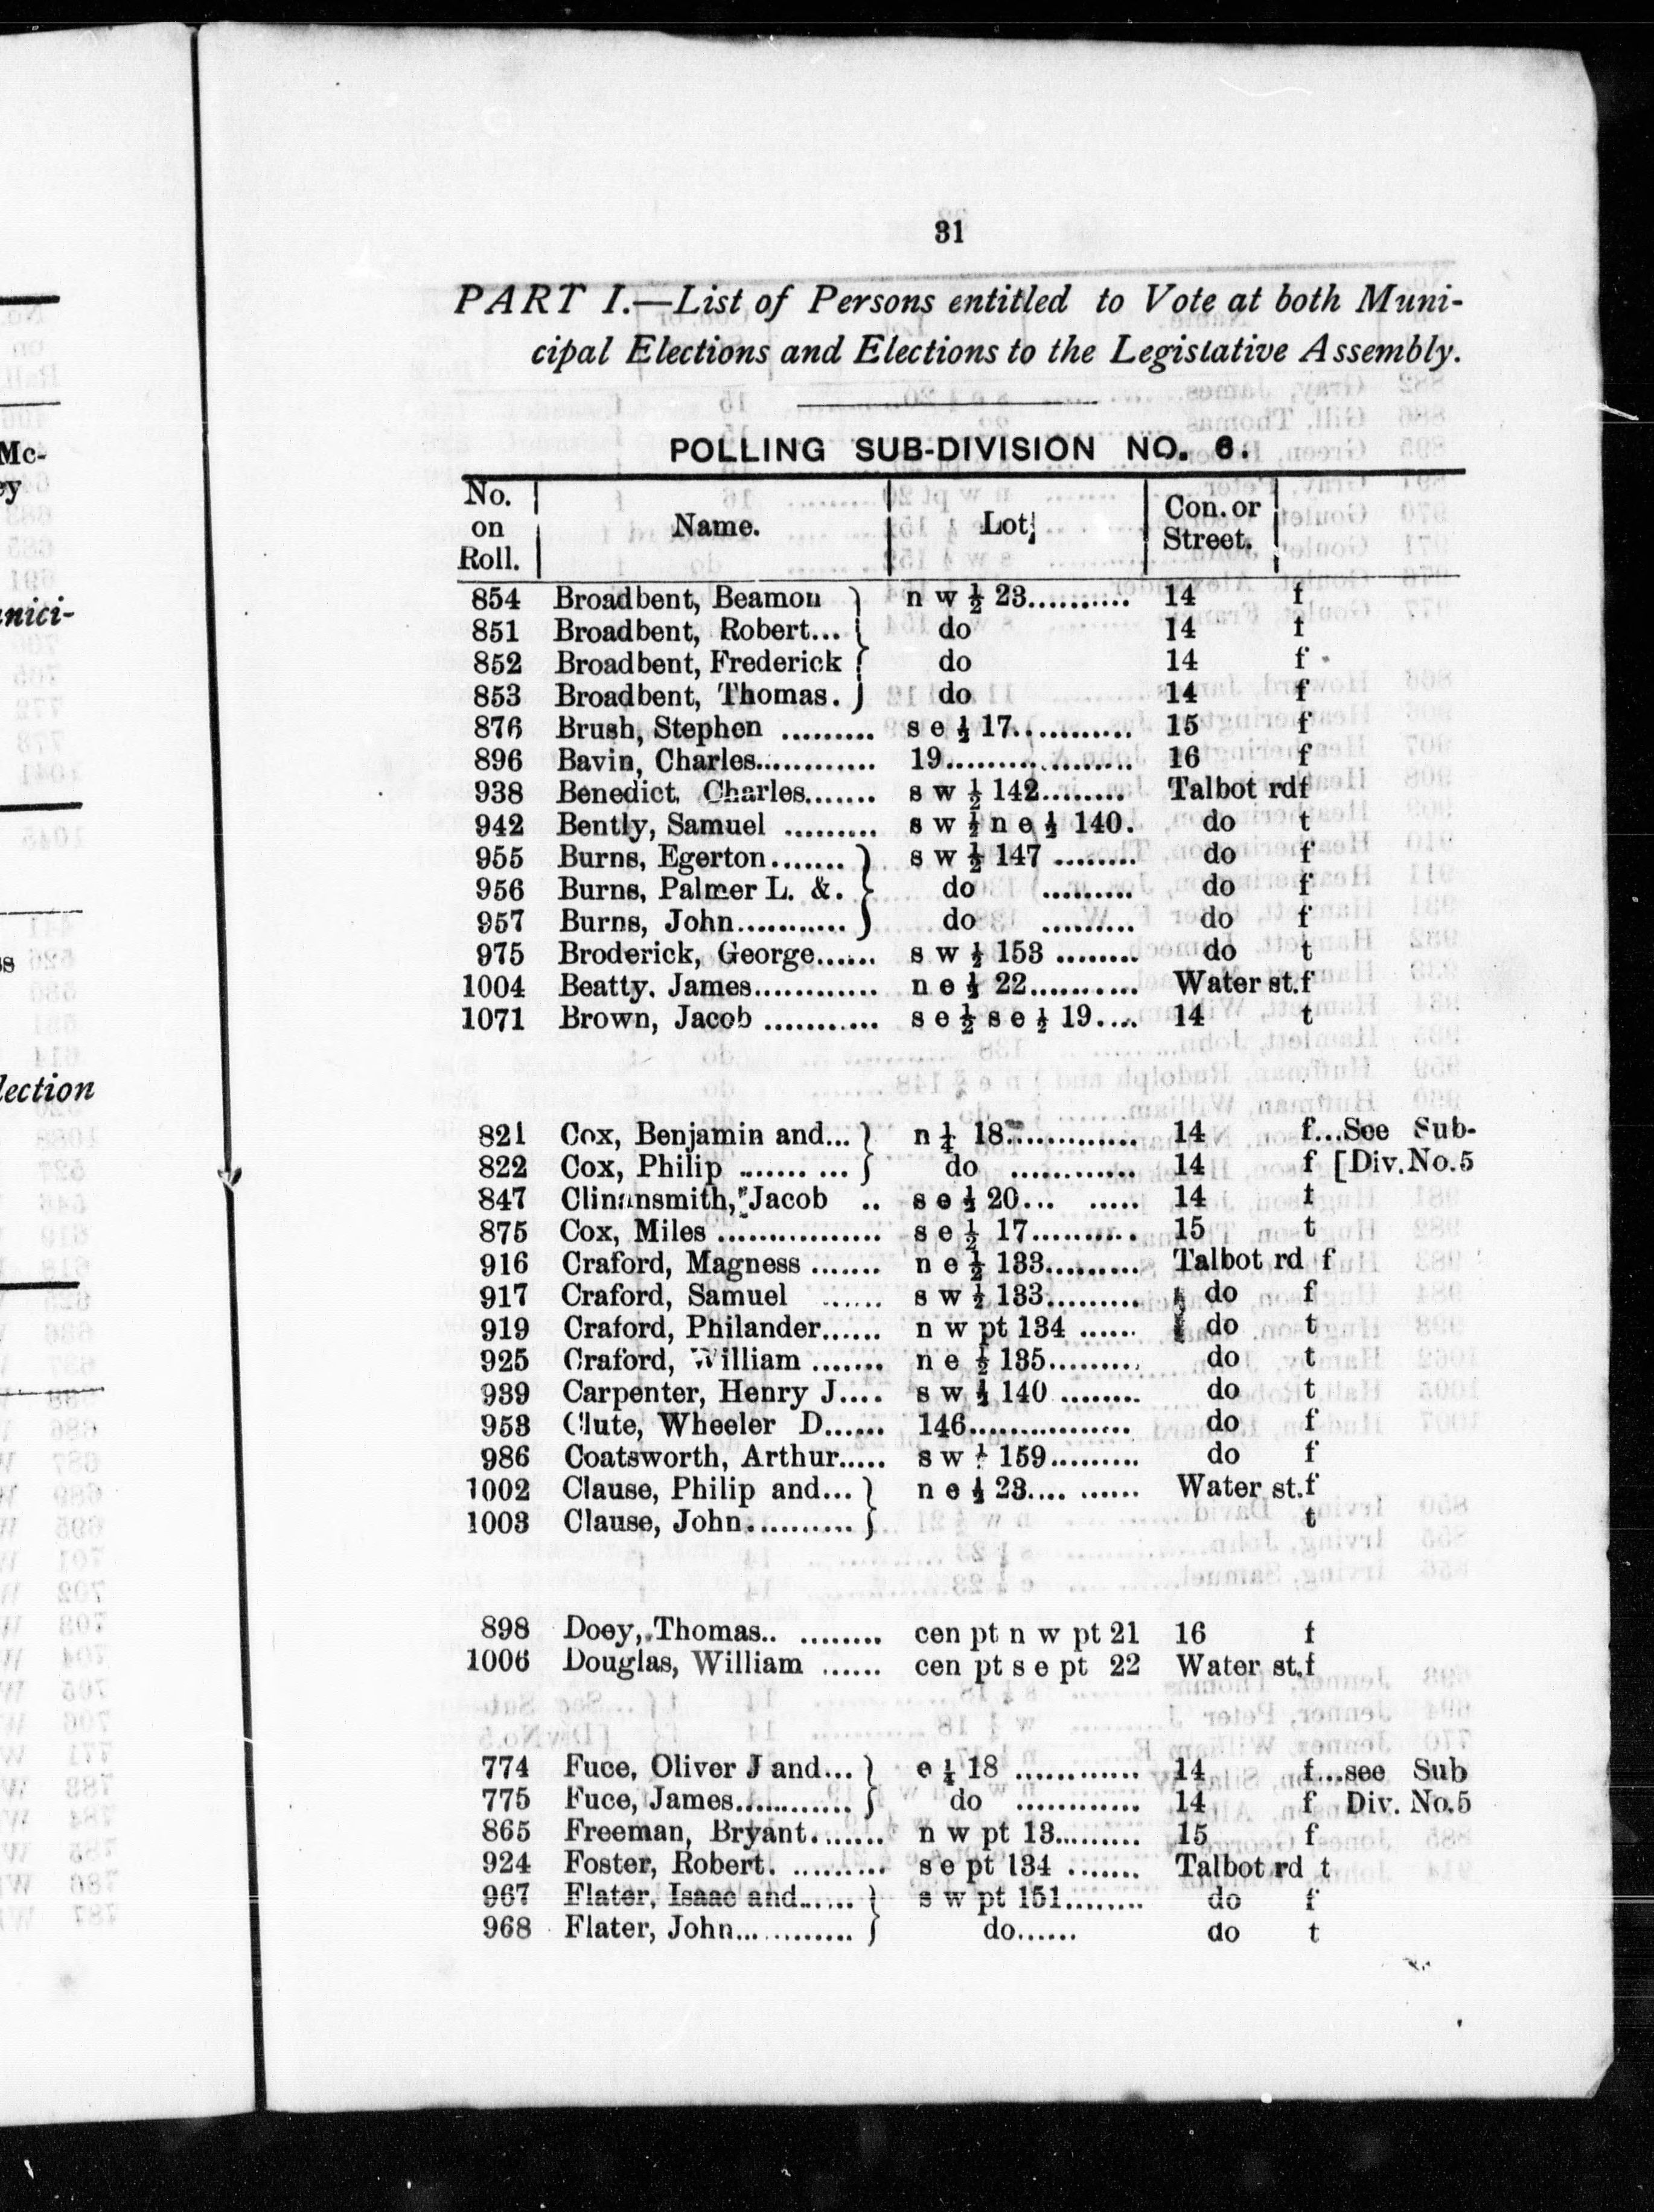 31
PART I.—List of Persons entitled to Vote at both Muni-
cipal Elections and Elections to the Legislative Assembly.
POLLING SUB-DIVISION NO. 6.
No. on Roll. Name. Lot. Con. or Street.
854 Broadbent, Beamon } n w ½ 23.......... 14 f
851 Broadbent, Robert... } do 14 f
852 Broadbent, Frederick } do 14 f
853 Broadbent, Thomas. } do 14 f
876 Brush, Stephen ......... s e ½ 17........... 15 f
896 Bavin, Charles............ 19.................. 16 f
938 Benedict, Charles....... s w ½ 142........ Talbot rd f
942 Bently, Samuel ......... s w ½ n e ½ 140. do t
955 Burns, Egerton....... } s w ½ 147 ........ do f
956 Burns, Palmer L. &. } do ......... do f
957 Burns, John........... } do ......... do f
975 Broderick, George...... s w ½ 153 ........ do t
1004 Beatty, James............ n e ½ 22.......... Water st. f
1071 Brown, Jacob ........... s e ½ s e ½ 19.... 14 t
821 Cox, Benjamin and... } n ¼ 18............. 14 f...See Sub-
822 Cox, Philip ....... ... } do ............ 14 f [Div. No. 5
847 Clinansmith, Jacob .. s e ½ 20... ..... 14 t
875 Cox, Miles ................ s e ½ 17.......... 15 t
916 Craford, Magness ....... n e ½ 133......... Talbot rd f
917 Craford, Samuel ...... s w ½ 133......... do f
919 Craford, Philander...... n w pt 134 ...... do t
925 Craford, William ....... n e ½ 135......... do t
939 Carpenter, Henry J.... s w ½ 140 ........ do t
953 Clute, Wheeler D...... 146................ do f
986 Coatsworth, Arthur..... s w 159......... do f
1002 Clause, Philip and... } n e ½ 23.... ...... Water st. f
1003 Clause, John.......... } t
898 Doey, Thomas.. ........ cen pt n w pt 21 16 f
1006 Douglas, William ...... cen pt s e pt 22 Water st. f
774 Fuce, Oliver J and... } e ¼ 18 ............ 14 f...see Sub
775 Fuce, James............ } do ............ 14 f Div. No. 5
865 Freeman, Bryant....... n w pt 13......... 15 f
924 Foster, Robert. ......... s e pt 134 ....... Talbot rd t
967 Flater, Isaac and...... } s w pt 151........ do f
968 Flater, John............ } do...... do t